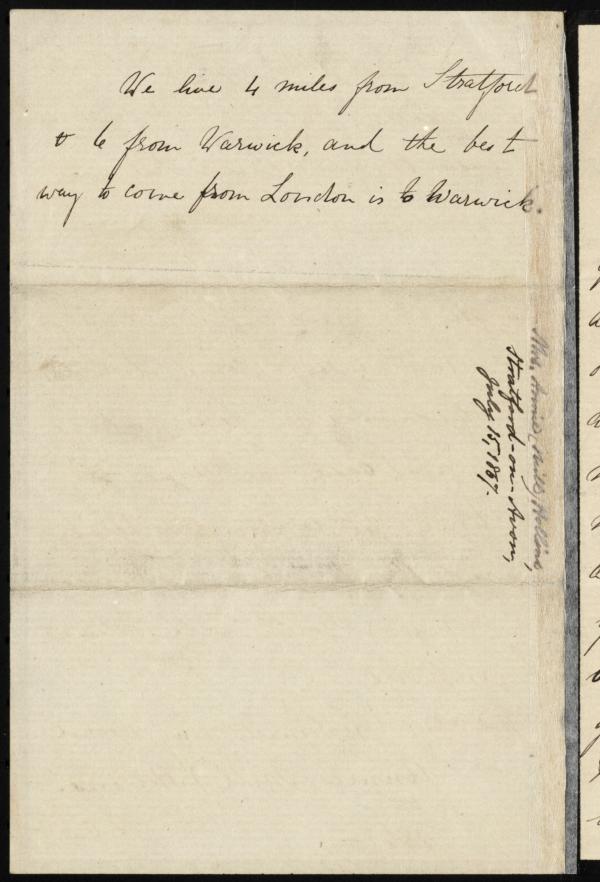 We live 4 miles from Stratford
& 6 from Warwick, and the best
way to come from London is to Warwick.
Mrs. Annie (Mills) Hollins,
Stratford-on-Avon,
July 15, 1867.